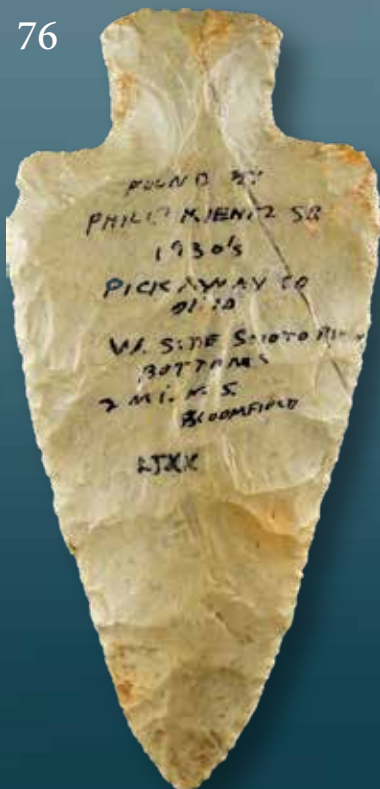 76
FOUND BY
PHILIP KIENTZ SR
1930's
PICKAWAY CO
OHIO
W. SIDE SCIOTO RIVER
BOTTOMS
2 MI. N. S.
BLOOMFIELD